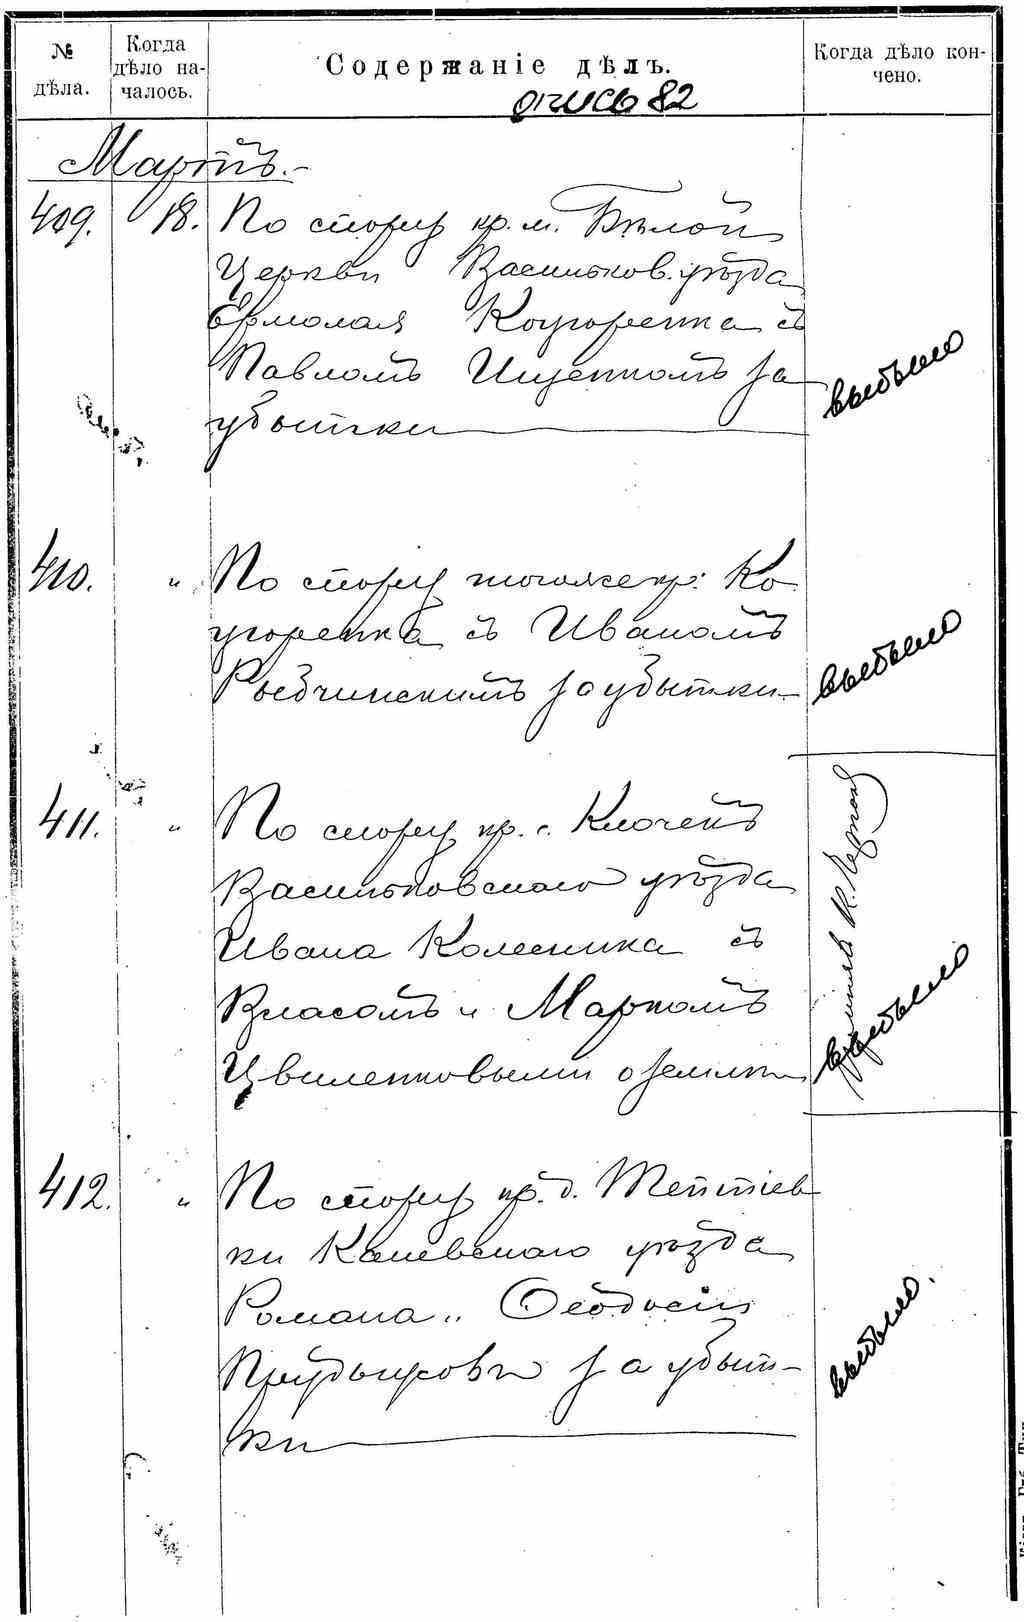 № дѣла.
Когда дѣло на-
чалось.
Содержаніе дѣлъ.
Когда дѣло кон-
чено.
опись 82
Мартъ.
409. 18. По спору кр. м. Бѣлой
Церкви Васильков. уѣзда
Ермолая Коцюренка съ
Павломъ Ищенкомъ за
убытки
выбыло
410. " По спору тогоже кр: Ко-
цюренка съ Иваномъ
Рыбчинскимъ за убытки
выбыло
411. " По спору кр. с. Клочекъ
Васильковскаго уѣзда
Ивана Колесника съ
Власомъ и Маркомъ
Цвиленковыми о землѣ
выбыло
412. " По спору кр. д. Тептіев-
ки Каневскаго уѣзда
Романа и Ѳеодосія
за убыт-
ки
выбыло.